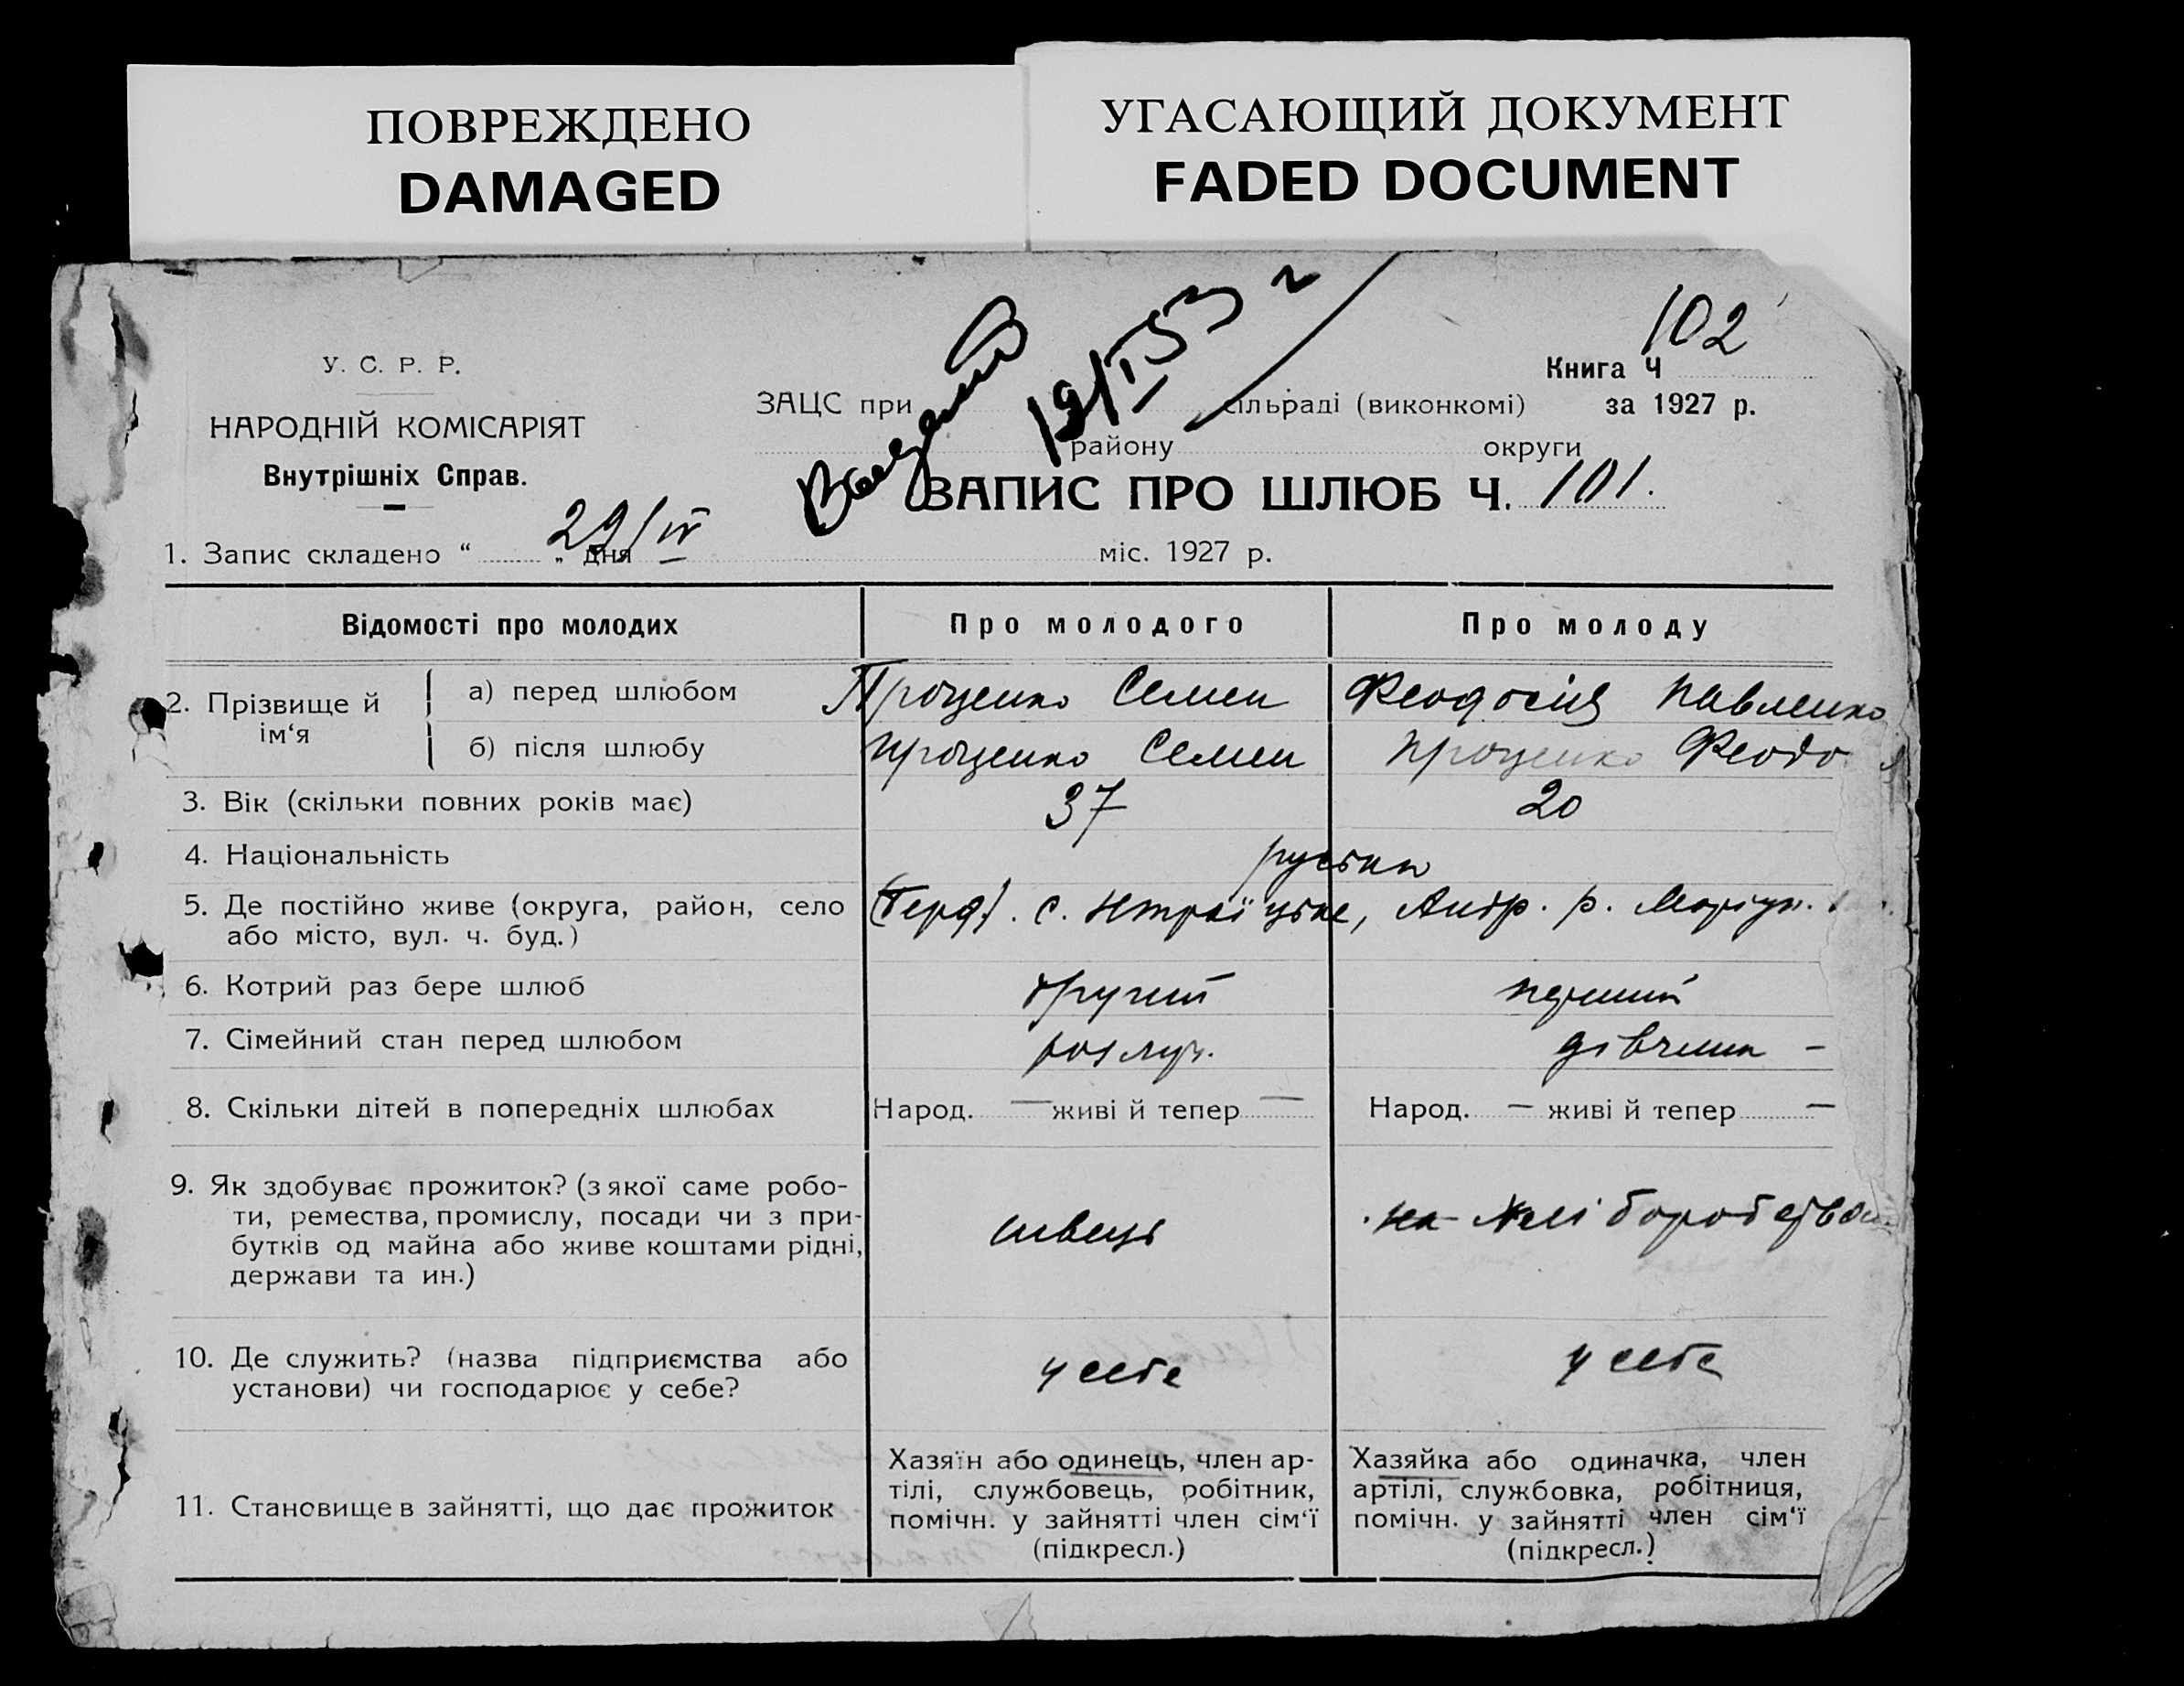 ПОВРЕЖДЕНО
DAMAGED
УГАСАЮЩИЙ ДОКУМЕНТ
FADED DOCUMENT
102
У. С. Р. Р.
НАРОДНІЙ КОМІСАРІЯТ
Внутрішніх Справ.
19/I 53 г
Книга Ч
ЗАЦС при сільраді (виконкомі) за 1927 р.
району округи
ЗАПИС ПРО ШЛЮБ Ч. 101.
1. Запис складено “ 29/IV „ дня міс. 1927 р.
Відомості про молодих Про молодого Про молоду
2. Прізвище й ім‘я а) перед шлюбом Проценко Семен Феодосія Павленко
б) після шлюбу Проценко Семен Проценко Феодо
3. Вік (скільки повних років має) 37 20
4. Національність руськи
5. Де постійно живе (округа, район, село
або місто, вул. ч. буд.)
с. , р. Маріуп.
6. Котрий раз бере шлюб другий перший
7. Сімейний стан перед шлюбом розлуч. дівчина –
8. Скільки дітей в попередніх шлюбах Народ. — живі й тепер — Народ. — живі й тепер —
9. Як здобуває прожиток? (з якої саме робо-
ти, ремества, промислу, посади чи з при-
бутків од майна або живе коштами рідні,
держави та ин.)
швець
10. Де служить? (назва підприємства або
установи) чи господарює у себе?
у себе у себе
11. Становище в зайнятті, що дає прожиток
Хазяїн або одинець, член ар-
тілі, службовець, робітник,
помічн. у зайнятті член сім‘ї
(підкресл.)
Хазяйка або одиначка, член
артілі, службовка, робітниця,
помічн. у зайнятті член сім‘ї
(підкресл.)